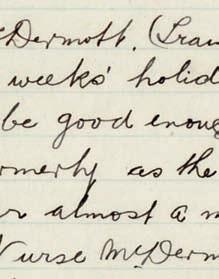 McDermott. (Tran
weeks' holid
be good enoug
ormerly as the
er almost a m
Nurse McDerm